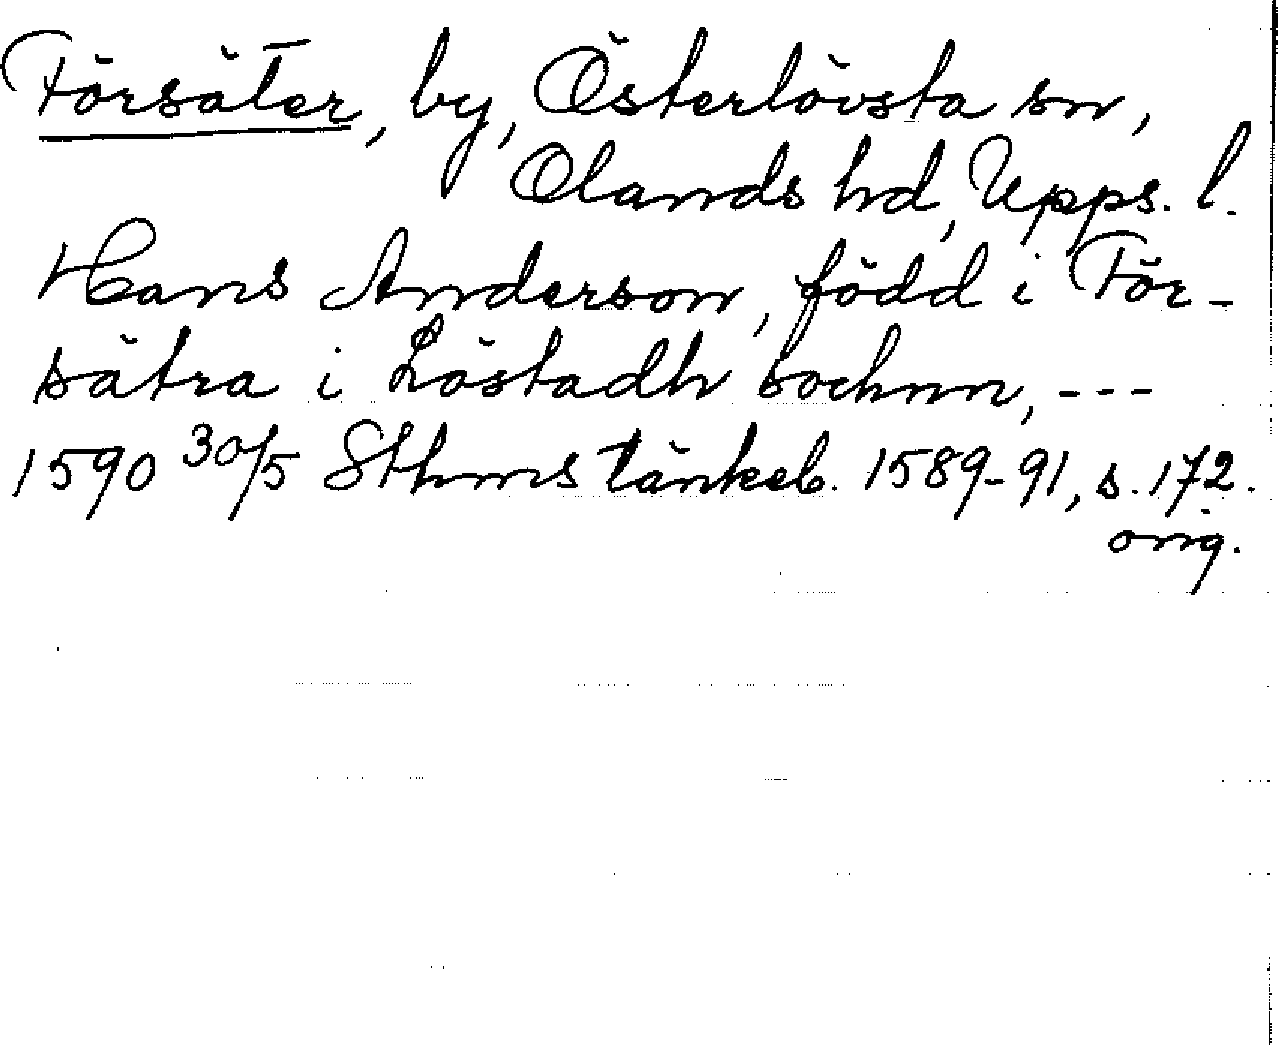 Försäter, by, Österlövsta sn,
Olands hd, Upps. l.
Hans Anderson, född i För-
sätra i Löstadh sochnn, ---
1590 30/5 Sthms tänkeb. 1589-91, s. 172.
orig.